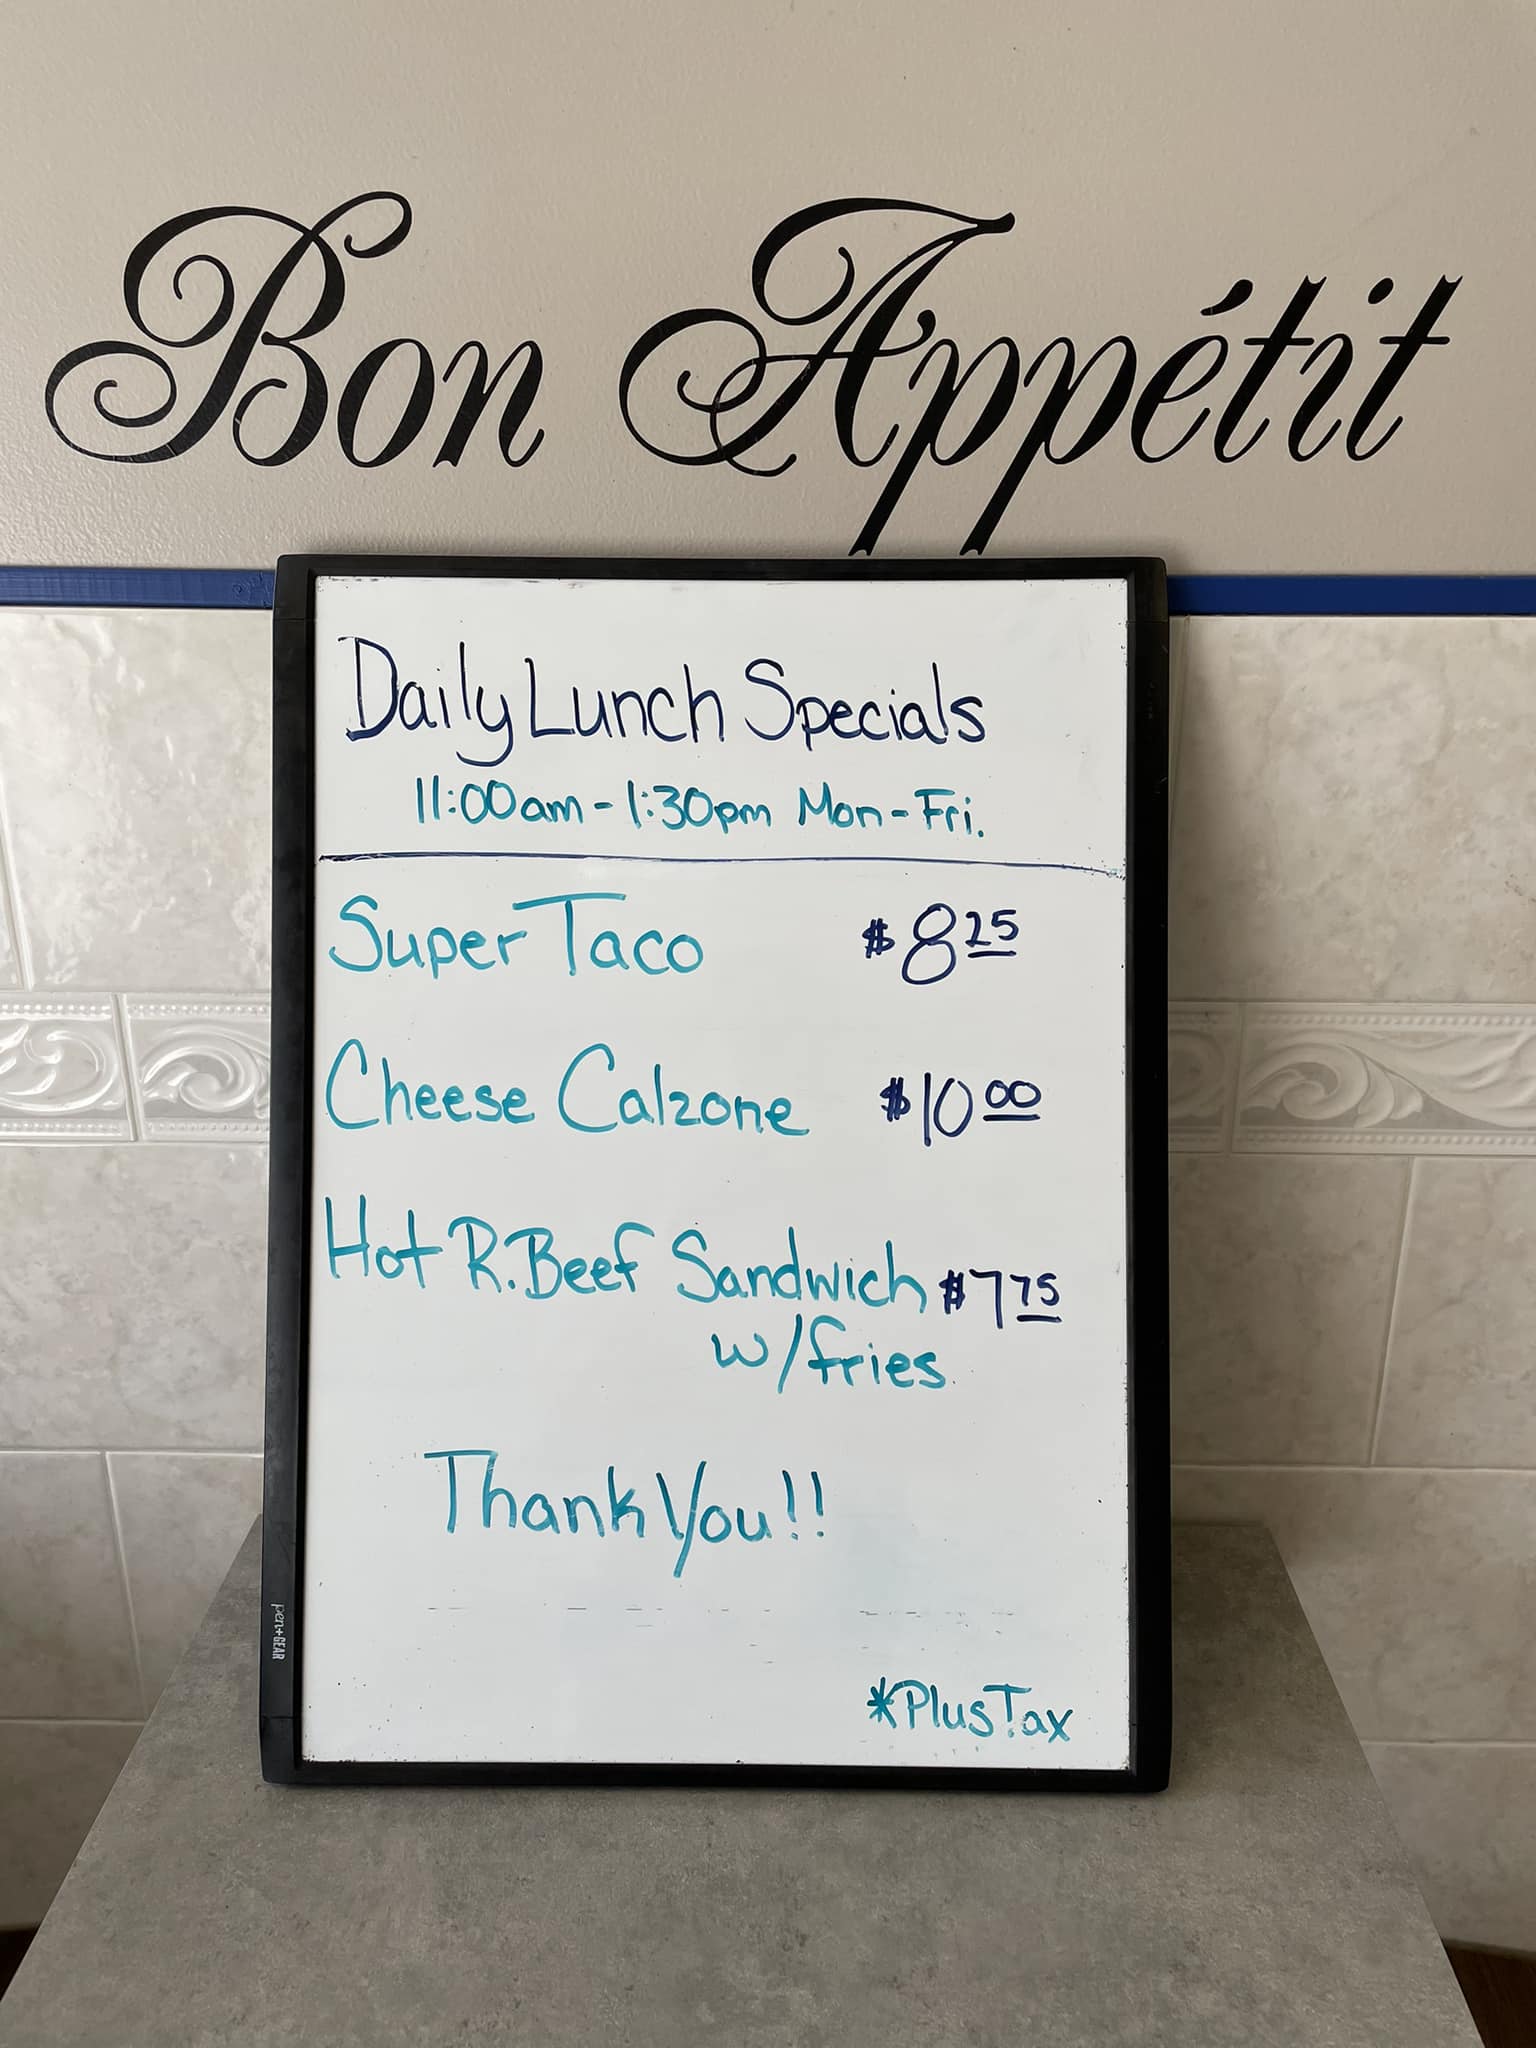 Bon Appétit
Daily Lunch Specials
11:00am - 1:30pm Mon-Fri.
Super Taco $8 25
Cheese Calzone $10 00
Hot R. Beef Sandwich $7 75
w/fries
Thank You!!
*Plus Tax
pen+GEAR